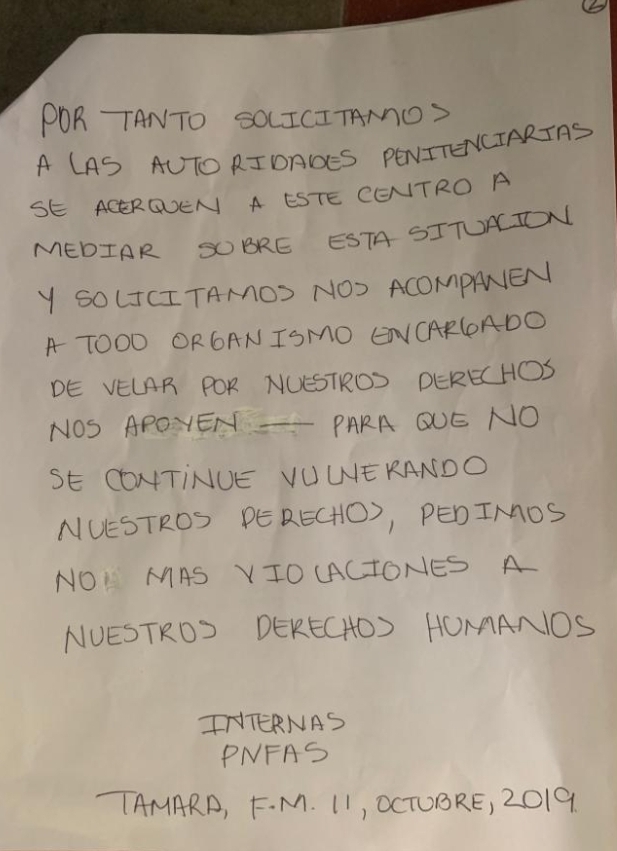 2
POR TANTO SOLICITAMOS
A LAS AUTORIDADES PENITENCIARIAS
SE ACERQUEN A ESTE CENTRO A
MEDIAR SOBRE ESTA SITUACION
Y SOLICITAMOS NOS ACOMPANEN
A TODO ORGANISMO ENCARGADO
DE VELAR POR NUESTROS DERECHOS
NOS APOYEN — PARA QUE NO
SE CONTINUE VULNERANDO
NUESTROS DERECHOS, PEDIMOS
NO MAS VIOLACIONES A
NUESTROS DERECHOS HUMANOS
INTERNAS
PNFAS
TAMARA, F.M. 11, OCTUBRE, 2019.